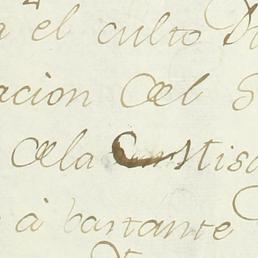 el culto
acion del
dela Misa
à bastante